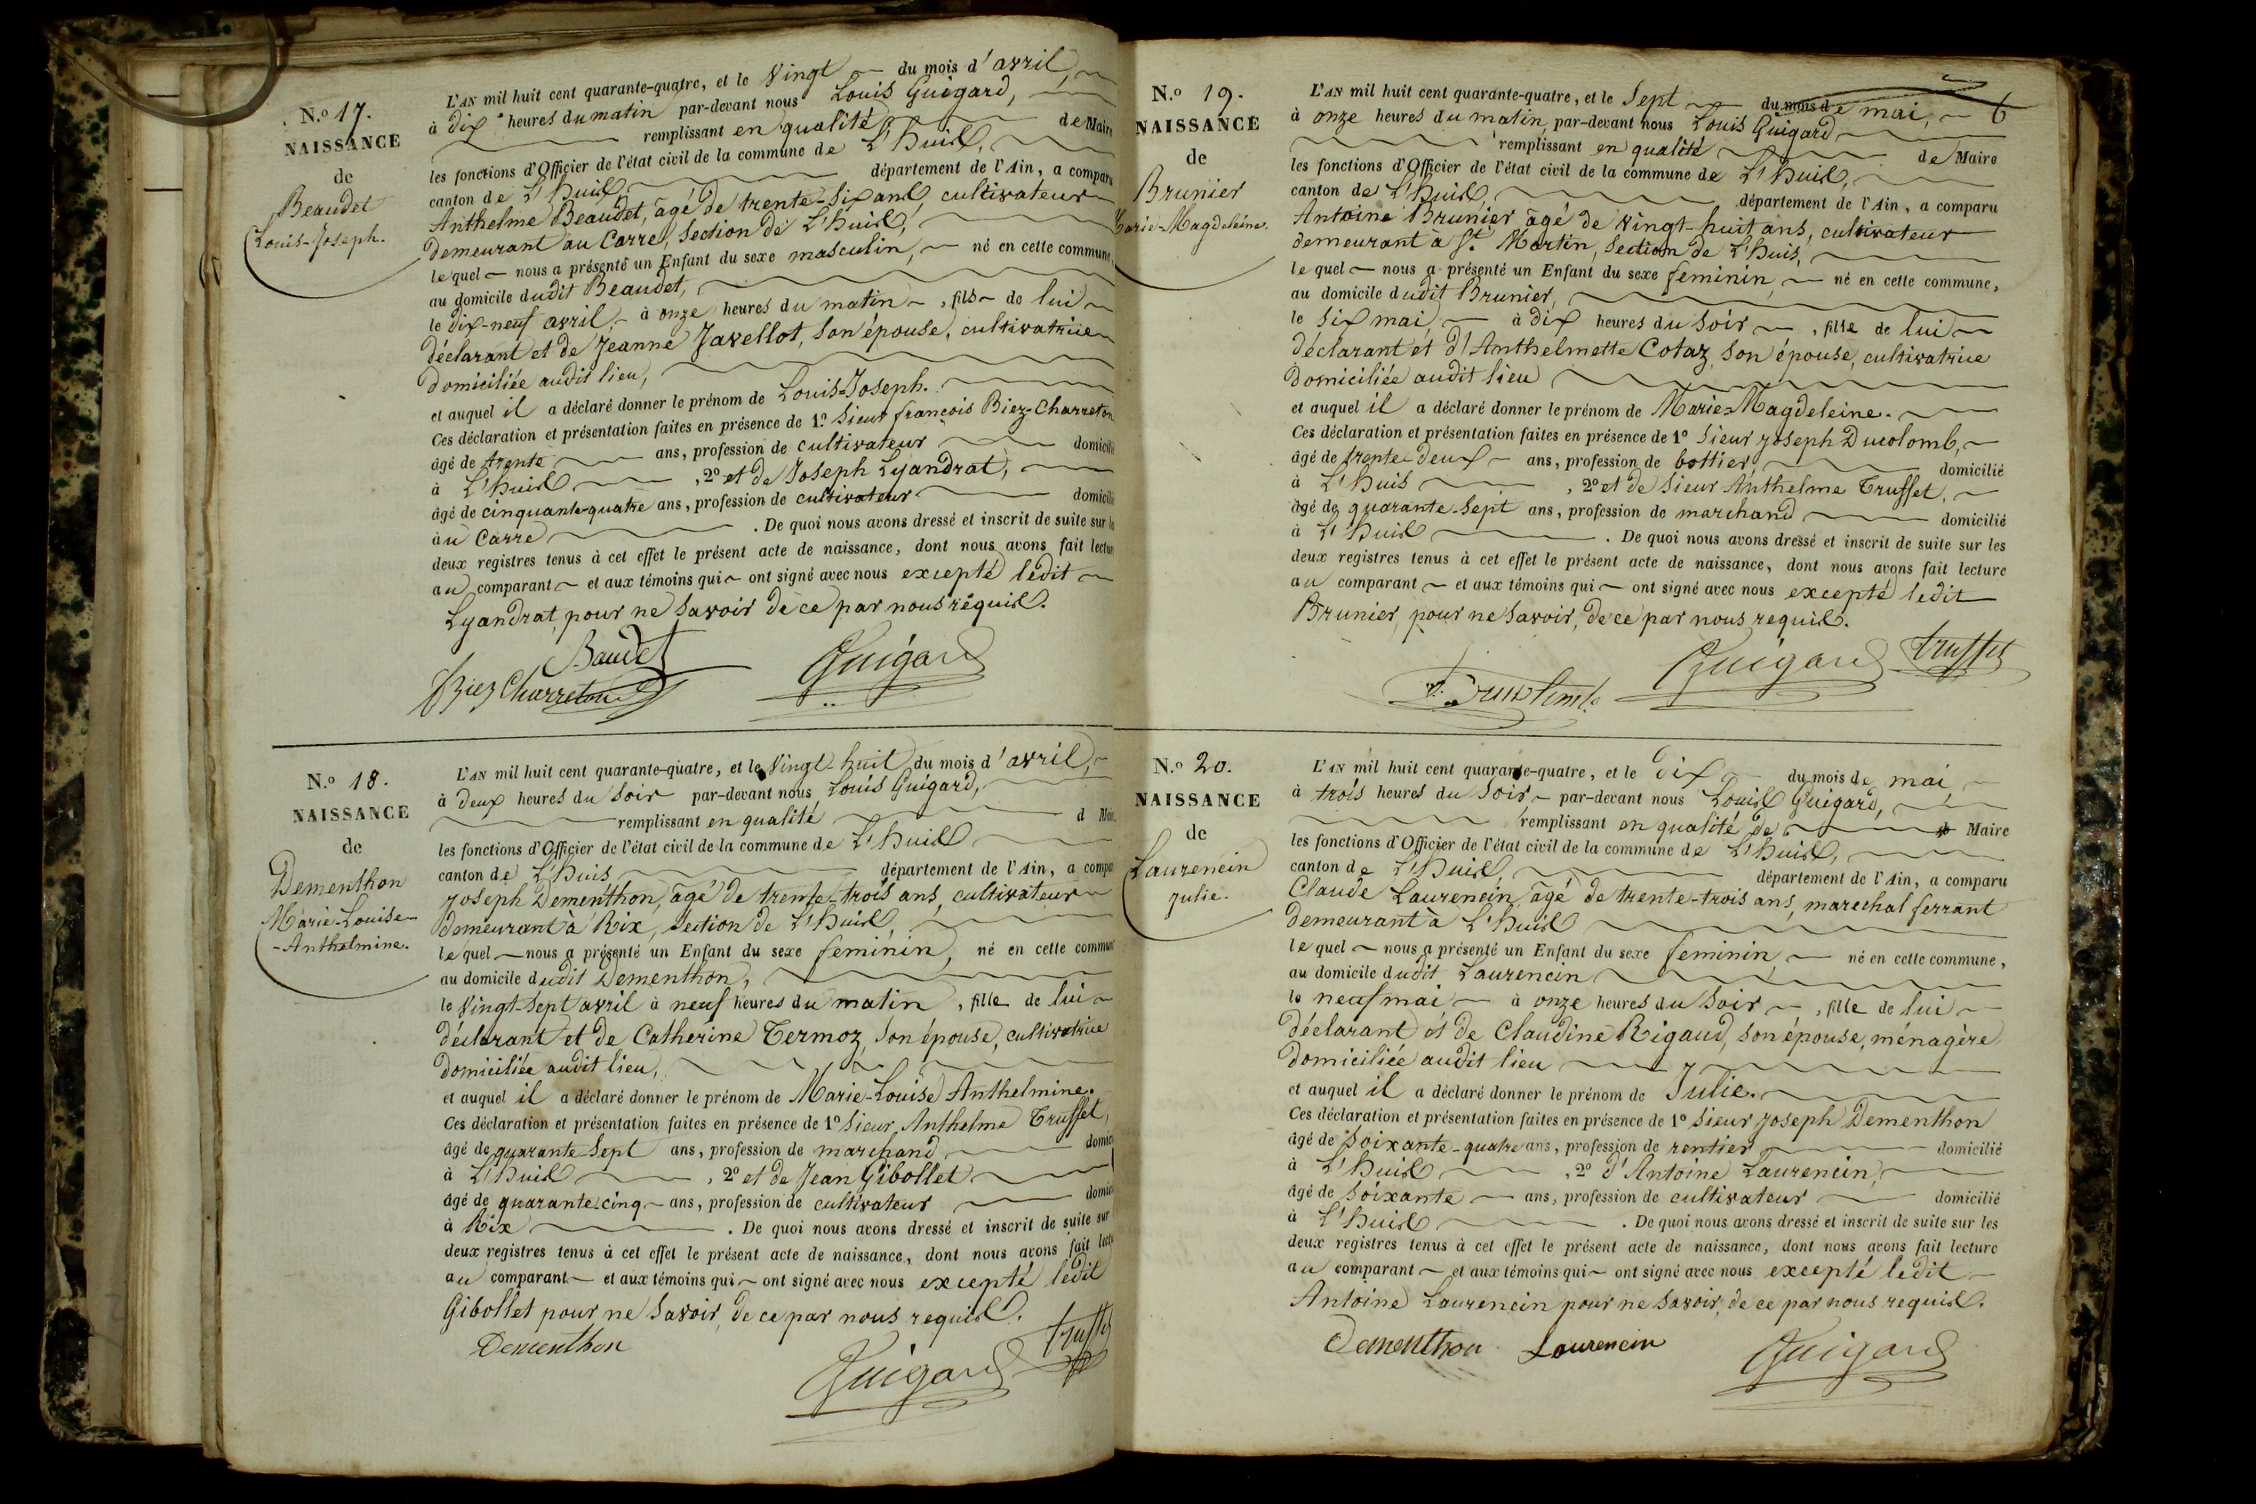 N.o 17.
NAISSANCE
de
Beaudet
Louis-Joseph.
L'AN mil huit cent quarante-quatre, et le Vingt du mois d'avril,
à dix heures du matin par-devant nous Louis Guigard,
remplissant en qualité de Maire
les fonctions d'Officier de l'état civil de la commune de L'huis,
canton de L'huis, département de l'Ain, a comparu
Anthelme Beaudet, âgé de trente-six ans, cultivateur
demeurant au Carre, Section de L'huis,
lequel nous a présenté un Enfant du sexe masculin, né en cette commune,
au domicile dudit Beaudet,
le dix-neuf avril, à onze heures du matin, fils de lui
déclarant et de Jeanne Javellot, son épouse, cultivatrice
domiciliée audit lieu,
et auquel il a déclaré donner le prénom de Louis-Joseph.
Ces déclaration et présentation faites en présence de 1.o Sieur françois Biez-Charreton
âgé de trente ans, profession de cultivateur domicilié
à L'huis, 2o et de Joseph Lyandrat,
âgé de cinquante-quatre ans, profession de cultivateur domicilié
au Carre. De quoi nous avons dressé et inscrit de suite sur les
deux registres tenus à cet effet le présent acte de naissance, dont nous avons fait lecture
au comparant et aux témoins qui ont signé avec nous excepté ledit
Lyandrat, pour ne savoir de ce par nous réquis.
Baudet
Biez Charreton
Guigard
N.o 18.
NAISSANCE
de
Dementhon
Marie-Louise-
-Anthelmine.
L'AN mil huit cent quarante-quatre, et le Vingt-huit du mois d'avril,
à deux heures du soir par-devant nous Louis Guigard,
remplissant en qualité d Maire
les fonctions d'Officier de l'état civil de la commune de L'huis
canton de L'huis département de l'Ain, a comparu
Joseph Dementhon, âgé de trente-trois ans, cultivateur
demeurant à Rix, Section de L'huis
lequel nous a présenté un Enfant du sexe feminin, né en cette commune
au domicile dudit Dementhon,
le Vingt-sept avril à neuf heures du matin, fille de lui
déclarant et de Catherine Termoz, son épouse, cultivatrice
domiciliée audit lieu,
et auquel il a déclaré donner le prénom de Marie-Louise Anthelmine.
Ces déclaration et présentation faites en présence de 1o Sieur Anthelme Truffet,
âgé de quarante-sept ans, profession de marchand domicilié
à L'huis, 2o et de Jean Gibollet
âgé de quarante-cinq ans, profession de cultivateur domicilié
à Rix. De quoi nous avons dressé et inscrit de suite sur
deux registres tenus à cet effet le présent acte de naissance, dont nous avons fait lecture
au comparant et aux témoins qui ont signé avec nous excepté ledit
Gibollet pour ne savoir, de ce par nous requis.
Dementhon
truffet
Guigard
6
N.o 19.
NAISSANCE
de
Brunier
Marie-Magdeleine.
L'AN mil huit cent quarante-quatre, et le Sept du mois de mai,
à onze heures du matin, par-devant nous Louis Guigard
remplissant en qualité de Maire
les fonctions d'Officier de l'état civil de la commune de L'huis,
canton de L'huis, département de l'Ain, a comparu
Antoine Brunier âgé de vingt-huit ans, cultivateur
demeurant à St. Martin, Section de L'huis,
lequel nous a présenté un Enfant du sexe feminin, né en cette commune,
au domicile dudit Brunier,
le six mai, à dix heures du soir, fille de lui
déclarant et d'Anthelmette Cotaz, son épouse, cultivatrice
domiciliée audit lieu
et auquel il a déclaré donner le prénom de Marie-Magdeleine.
Ces déclaration et présentation faites en présence de 1o Sieur Joseph Ducolomb,
âgé de trente deux ans, profession de bottier, domicilié
à L'huis, 2o et de Sieur Anthelme Truffet,
âgé de quarante-sept ans, profession de marchand domicilié
à L'huis. De quoi nous avons dressé et inscrit de suite sur les
deux registres tenus à cet effet le présent acte de naissance, dont nous avons fait lecture
au comparant et aux témoins qui ont signé avec nous excepté ledit
Brunier, pour ne savoir, de ce par nous requis.
Guigard
truffet
N.o 20.
NAISSANCE
de
Laurencin
Julie.
L'AN mil huit cent quarante-quatre, et le dix du mois de mai,
à trois heures du soir, par-devant nous Louis Guigard,
remplissant en qualité de Maire
les fonctions d'Officier de l'état civil de la commune de L'huis,
canton de L'huis, département de l'Ain, a comparu
Claude Laurencin, âgé de trente-trois ans, marechal ferrant
demeurant à L'huis
lequel nous a présenté un Enfant du sexe feminin, né en cette commune,
au domicile dudit Laurencin
le neuf mai à onze heures du soir, fille de lui
déclarant et de Claudine Rigaud, son épouse, ménagère
domiciliée audit lieu
et auquel il a déclaré donner le prénom de Julie.
Ces déclaration et présentation faites en présence de 1o Sieur Joseph Dementhon
âgé de soixante-quatre ans, profession de rentier domicilié
à L'huis, 2o d'Antoine Laurencin,
âgé de soixante ans, profession de cultivateur domicilié
à L'huis. De quoi nous avons dressé et inscrit de suite sur les
deux registres tenus à cet effet le présent acte de naissance, dont nous avons fait lecture
au comparant et aux témoins qui ont signé avec nous excepté ledit
Antoine Laurencin pour ne savoir, de ce par nous requis.
Dementhon Laurencin Guigard